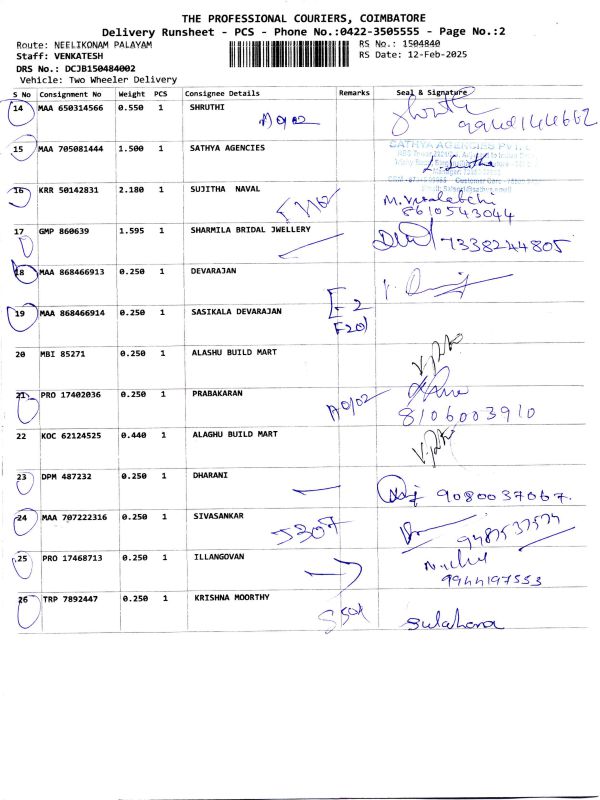 THE PROFESSIONAL COURIERS, COIMBATORE
Delivery Runsheet - PCS - Phone No.:0422-3505555 - Page No.:2
Route: NEELIKONAM PALAYAM
RS No.: 1504840
Staff: VENKATESH
RS Date: 12-Feb-2025
DRS No.: DCJB150484002
Vehicle: Two Wheeler Delivery
S No Consignment No Weight PCS Consignee Details Remarks Seal & Signature
14 MAA 650314566 0.550 1 SHRUTHI
A0102
15 MAA 705081444 1.500 1 SATHYA AGENCIES
SATHYA AGENCIES PVT. L
16 KRR 50142831 2.180 1 SUJITHA NAVAL
8610543044
17 GMP 860639 1.595 1 SHARMILA BRIDAL JWELLERY
7338244805
18 MAA 868466913 0.250 1 DEVARAJAN
19 MAA 868466914 0.250 1 SASIKALA DEVARAJAN
E-2
20 MBI 85271 0.250 1 ALASHU BUILD MART
21 PRO 17402036 0.250 1 PRABAKARAN
A0102
8106003910
22 KOC 62124525 0.440 1 ALAGHU BUILD MART
23 DPM 487232 0.250 1 DHARANI
9080037067.
24 MAA 707222316 0.250 1 SIVASANKAR
5307
9487537574
25 PRO 17468713 0.250 1 ILLANGOVAN
9944197553
26 TRP 7892447 0.250 1 KRISHNA MOORTHY
Sulahana